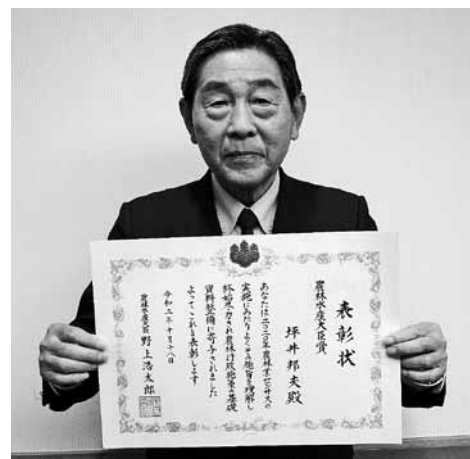 表彰状
農林水産大臣賞
坪井邦夫殿
あなたは二〇二〇年農林業センサスの
実施にあたりよくその趣旨を理解し
終始尽力され農林行政施策の基礎
資料整備に寄与されました
よってこれを表彰します
令和二年十月十八日
農林水産大臣 野上浩太郎